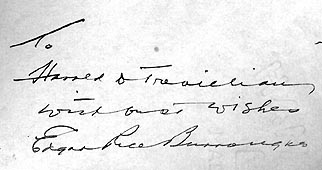 To
Harold D Trevillian
with best wishes
Edgar Rice Burroughs